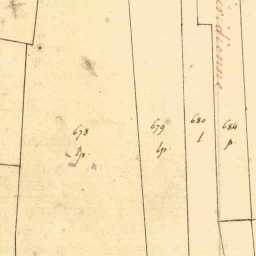 éridienne
678
lp.
679
lp.
680
l
684
p.